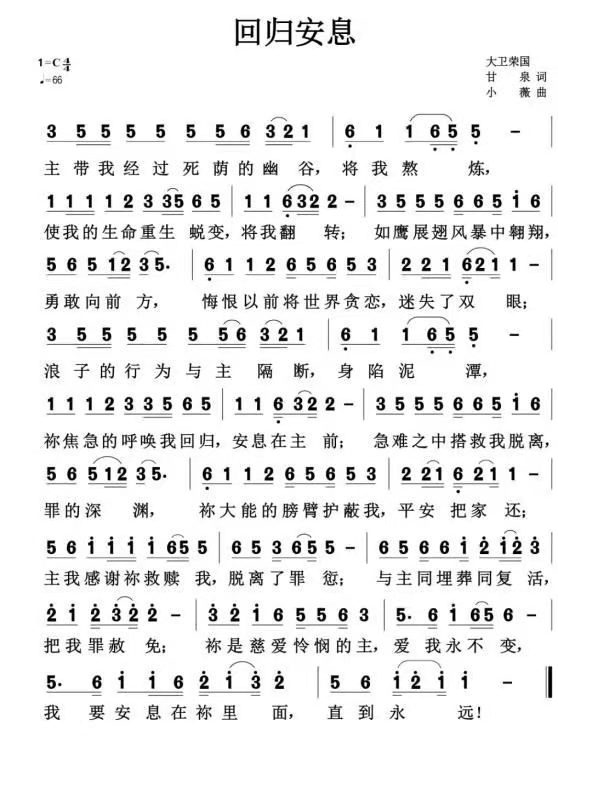 回归安息
1=C 4/4
♩=66
大卫荣国
甘 泉 词
小 薇 曲
3 5 5 5 5 5 6 6 3 2 1 | 6 1 1 6 5 5 – |
主带我经过死荫的幽谷,将我熬 炼,
1 1 1 1 2 3 3 5 6 5 | 1 1 6 3 2 2 – | 3 5 5 5 6 6 5 1 6 |
使我的生命重生 蜕变,将我翻 转; 如鹰展翅风暴中翱翔,
5 6 5 1 2 3 5. | 6 1 1 2 6 5 6 5 3 | 2 2 1 6 2 1 1 – |
勇敢向前 方, 悔恨以前将世界贪恋,迷失了双 眼;
3 5 5 5 5 5 6 6 3 2 1 | 6 1 1 6 5 5 – |
浪子的行为与主 隔 断,身陷泥 潭,
1 1 1 1 2 3 3 5 6 5 | 1 1 6 3 2 2 – | 3 5 5 5 6 6 5 1 6 |
祢焦急的呼唤我回归,安息在主 前; 急难之中搭救我脱离,
5 6 5 5 1 2 3 5. | 6 1 1 2 6 5 6 5 3 | 2 2 1 6 2 1 1 – |
罪的深 渊, 祢大能的膀臂护蔽我,平安 把家 还;
5 6 1 1 1 1 6 5 5 | 6 1 2 3 3 – | 6 5 6 6 1 2 1 2 3 |
主我感谢祢救赎 我,脱离了罪 愆; 与主同埋葬同复 活,
2 1 2 3 2 2 – | 3 2 1 6 5 5 6 3 | 5. 6 1 6 5 – |
把我罪赦 免; 祢是慈爱怜悯的主,爱 我永不变,
5. 6 1 6 2 1 3 2 | 5 6 2 1 1 – ‖
我 要安息在祢里 面,直到永 远!